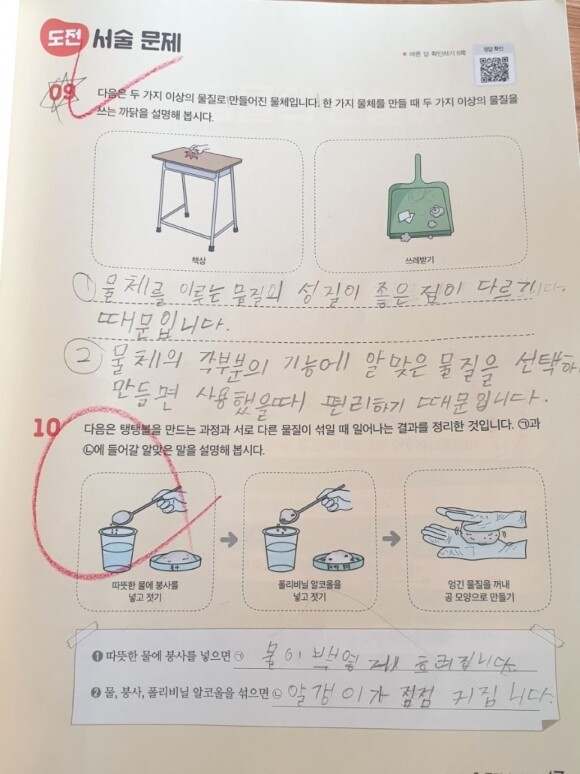 도전 서술 문제
바른 답 확인하기 6쪽
정답 확인
09 다음은 두 가지 이상의 물질로 만들어진 물체입니다. 한 가지 물체를 만들 때 두 가지 이상의 물질을
쓰는 까닭을 설명해 봅시다.
책상 쓰레받기
① 물체를 이루는 물질의 성질이 좋은 점이 다르기
때문입니다.
② 물체의 각부분의 기능에 알맞은 물질을 선택하
만들면 사용했을때 편리하기 때문입니다.
10 다음은 탱탱볼을 만드는 과정과 서로 다른 물질이 섞일 때 일어나는 결과를 정리한 것입니다. ㉠과
㉡에 들어갈 알맞은 말을 설명해 봅시다.
따뜻한 물에 붕사를 폴리비닐 알코올을 엉긴 물질을 꺼내
넣고 젓기 넣고 젓기 공 모양으로 만들기
❶ 따뜻한 물에 붕사를 넣으면 ㉠ 물이 흐려집니다.
❷ 물, 붕사, 폴리비닐 알코올을 섞으면 ㉡ 알갱이가 점점 커집니다.